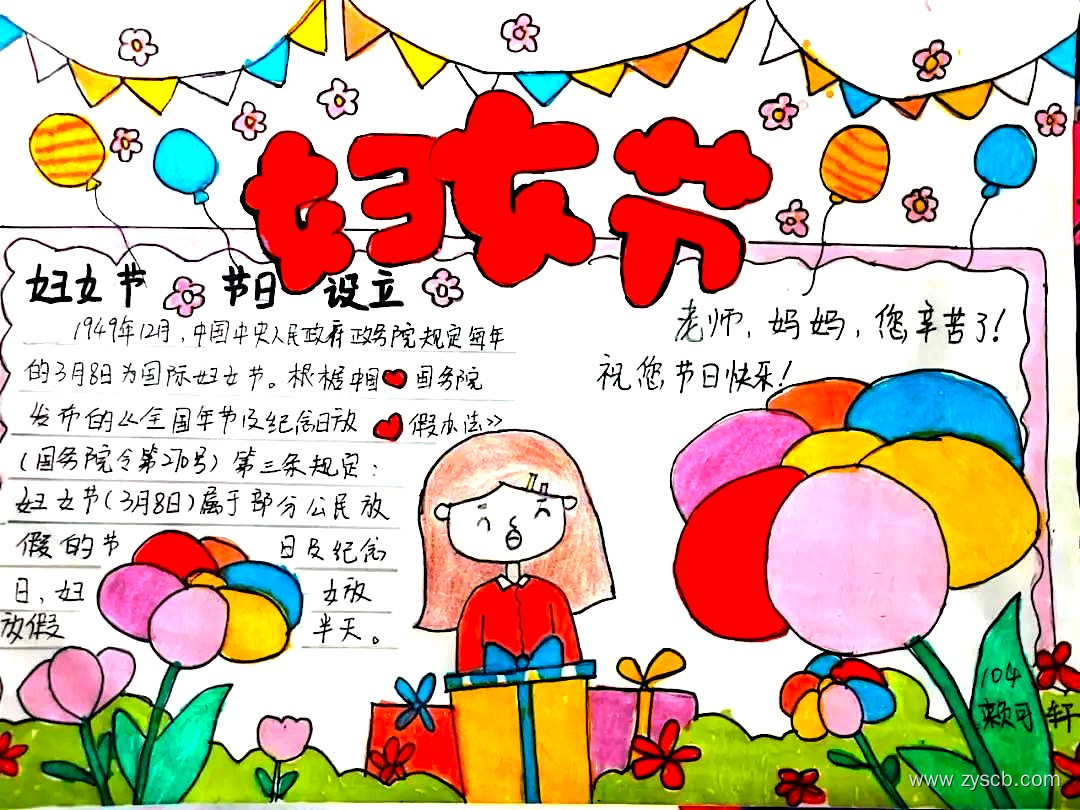 妇女节
妇女节 节日 设立
1949年12月,中国中央人民政府政务院规定每年
的3月8日为国际妇女节。根据中国 国务院
发布的《全国年节及纪念日放 假办法》
(国务院令第270号)第三条规定:
妇女节(3月8日)属于部分公民放
假的节 日及纪念
日,妇 女放
放假 半天。
老师,妈妈,您辛苦了!
祝您节日快乐!
104
赖可轩
www.zyscb.com